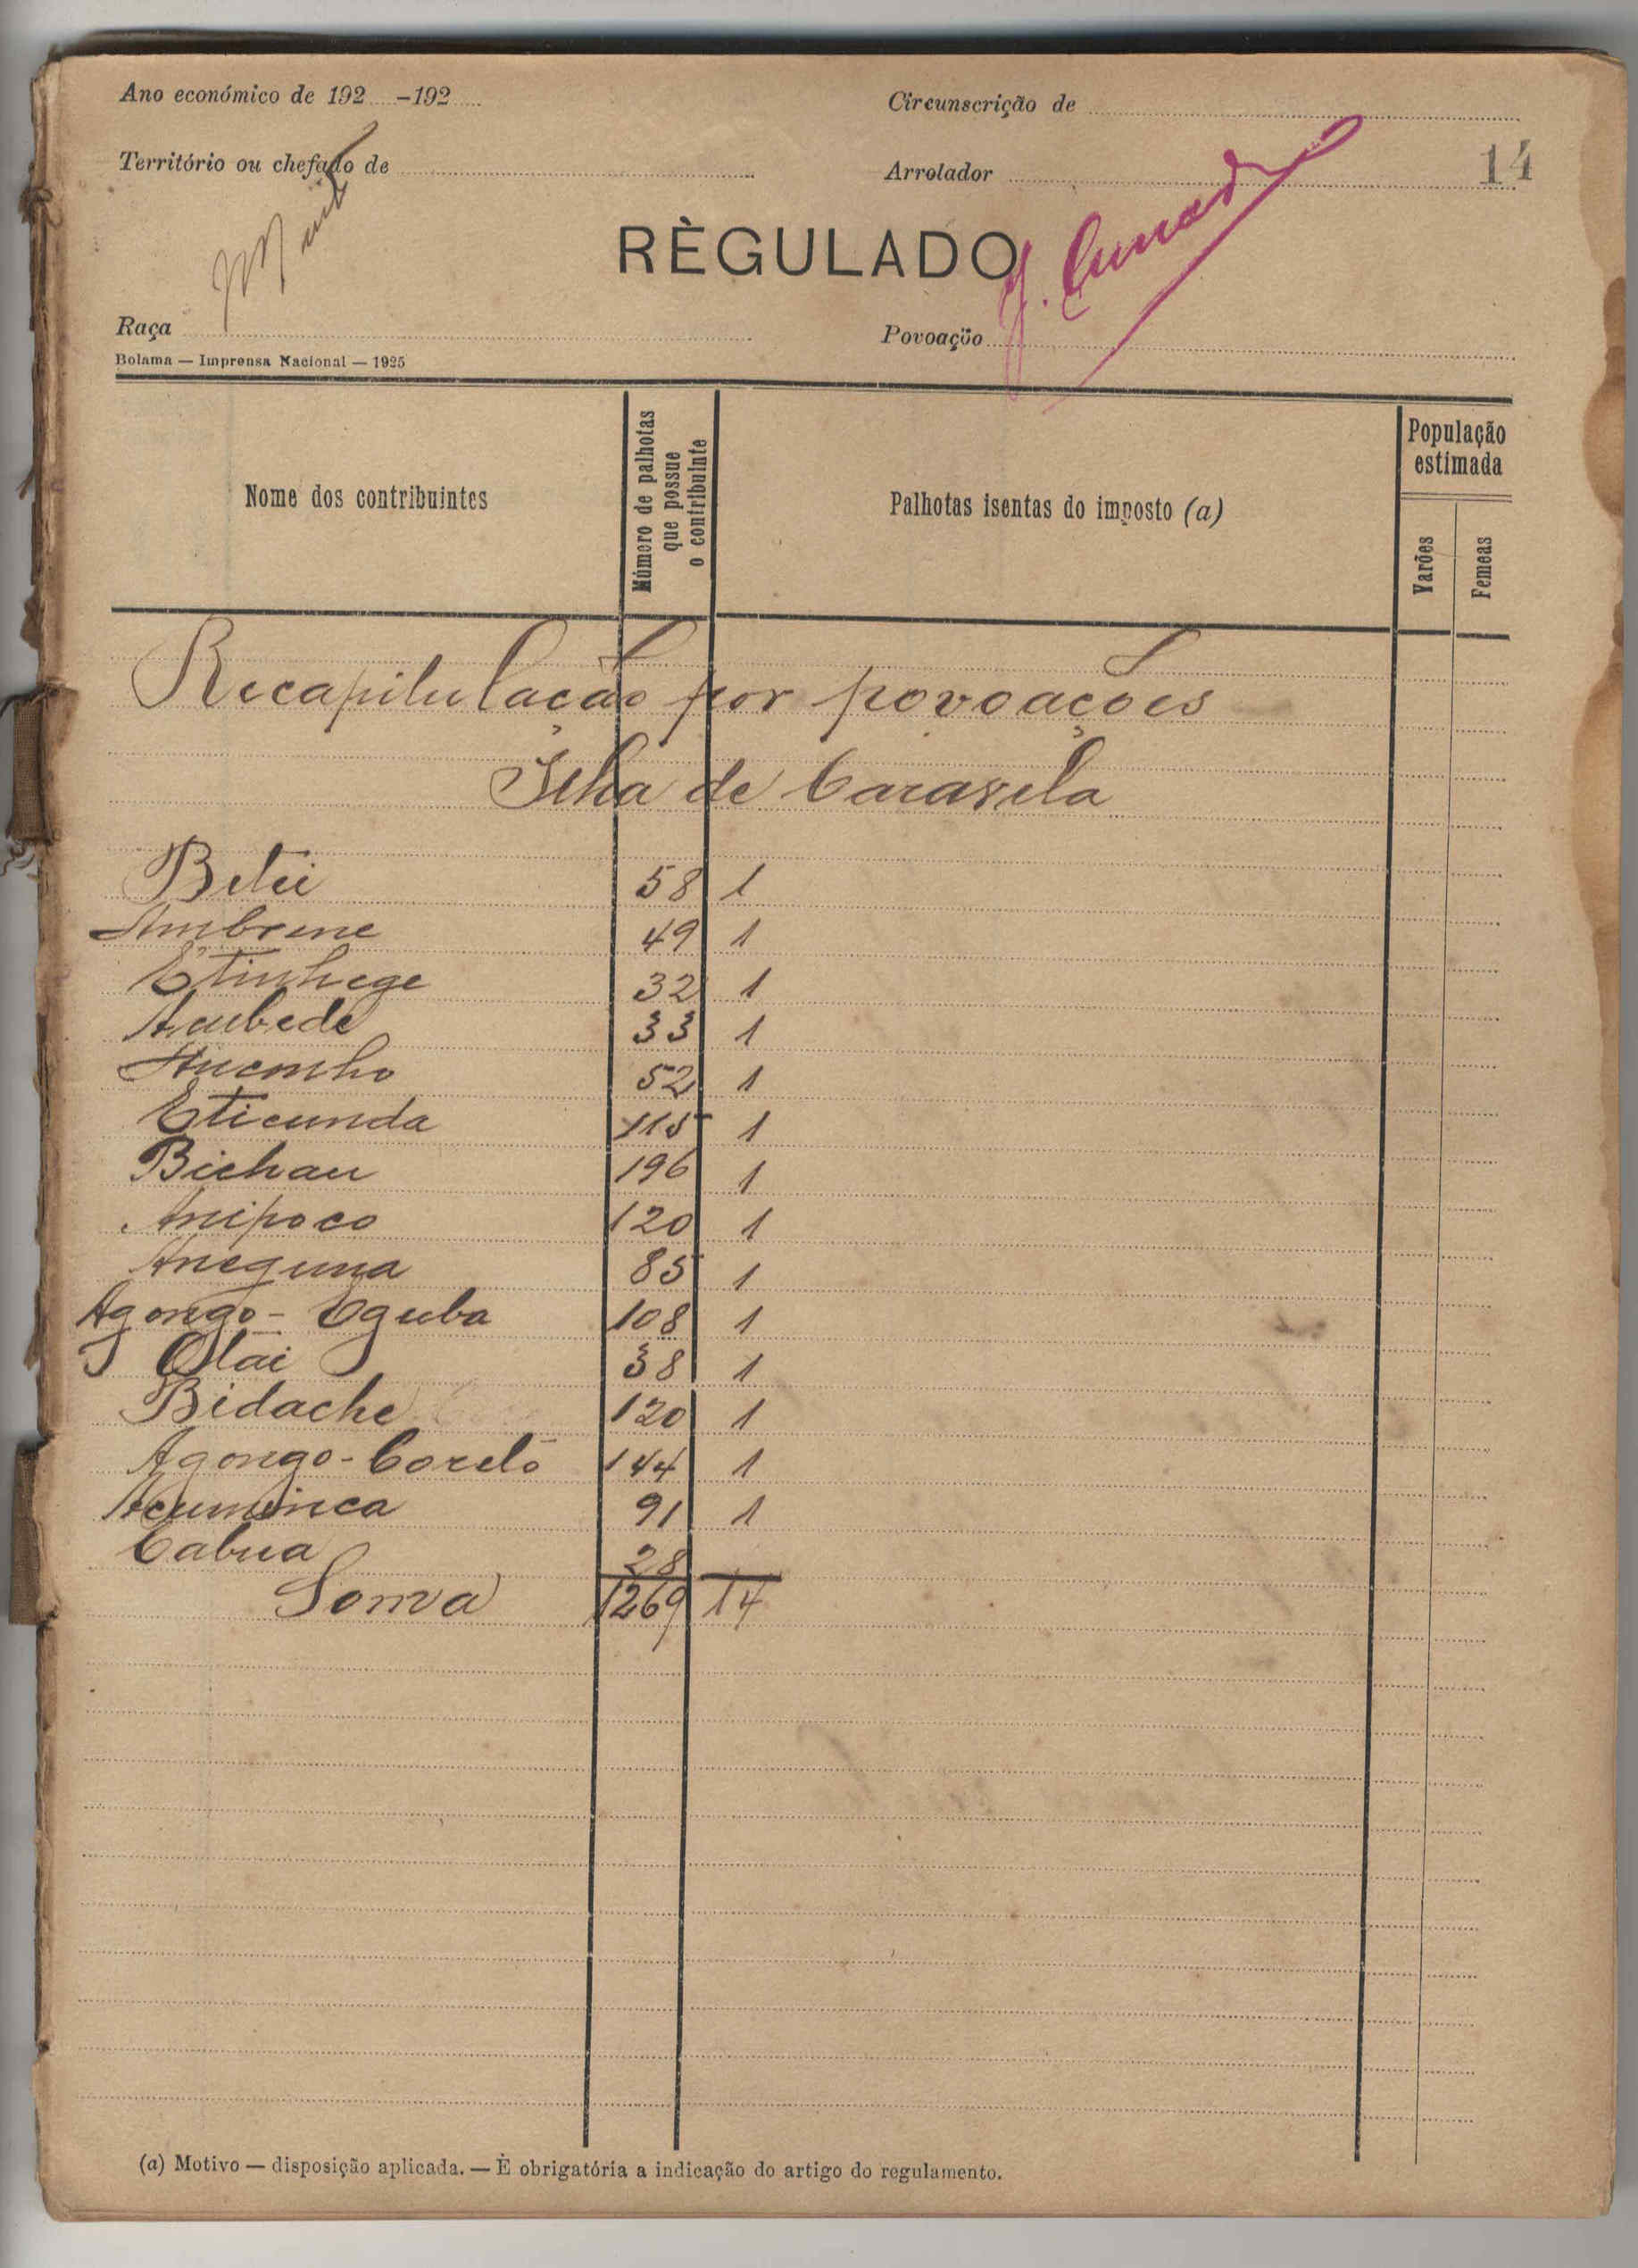 Ano económico de 192 -192
Circunscrição de
Território ou chefado de
Arrolador
14
RÈGULADO
Raça
Povoação
Bolama — Imprensa Nacional — 1925
Nome dos contribuintes
Número de palhotas que possue o contribuinte
Palhotas isentas do imposto (a)
População estimada
Varões
Femeas
Recapitulação por povoações
Ilha de Caravela
Betei 58 1
Ambrene 49 1
Etinhege 32 1
Acubede 33 1
52 1
Eticunda 115 1
Bichau 196 1
Anipoco 120 1
Aneguna 85 1
Agongo - Oguba 108 1
Olai 38 1
Bidache 120 1
Agongo - Coreló 144 1
Acuminca 91 1
Cabua 28
Soma 1269 14
(a) Motivo — disposição aplicada. — È obrigatória a indicação do artigo do regulamento.